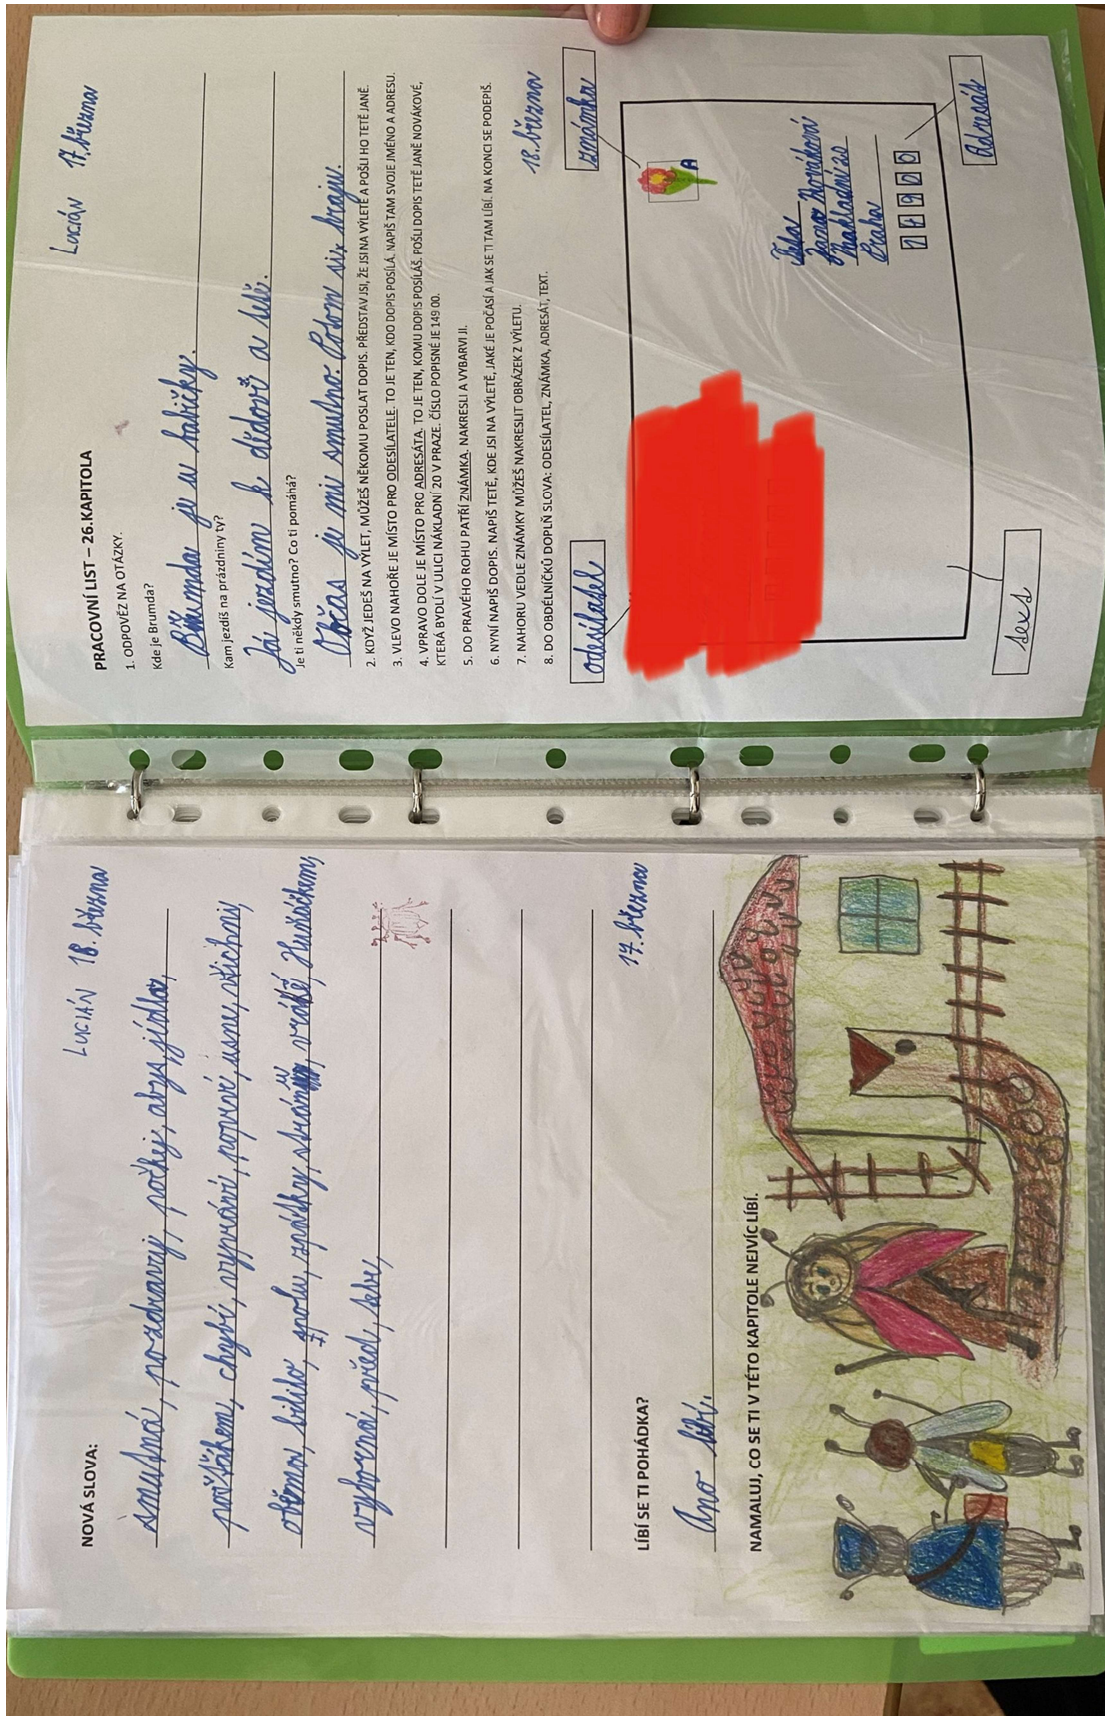 NOVÁ SLOVA:
LUCIÁN 18. března
smutná, pozdravuj, počkej, abys, jídlo,
pošťákem, chybí, vypráví, poprvé, usne, všichni,
oběma, bililo, spolu, zpátky, stránu, vrátě, Hušáčkem,
výborná, před, sebe,
LÍBÍ SE TI POHÁDKA?
17. března
Ano líbí.
NAMALUJ, CO SE TI V TÉTO KAPITOLE NEJVÍC LÍBÍ.
Lucián 17. března
PRACOVNÍ LIST – 26.KAPITOLA
1. ODPOVĚZ NA OTÁZKY.
Kde je Brumda?
Brumda je u babičky.
Kam jezdíš na prázdniny ty?
Já jezdím k dědovi a tetě.
Je ti někdy smutno? Co ti pomáhá?
Občas je mi smutno. Potom si hraju.
2. KDYŽ JEDEŠ NA VÝLET, MŮŽEŠ NĚKOMU POSLAT DOPIS. PŘEDSTAV JSI, ŽE JSI NA VÝLETĚ A POŠLI HO TETĚ JANĚ.
3. VLEVO NAHOŘE JE MÍSTO PRO ODESÍLATELE. TO JE TEN, KDO DOPIS POSÍLÁ. NAPIŠ TAM SVOJE JMÉNO A ADRESU.
4. VPRAVO DOLE JE MÍSTO PRO ADRESÁTA. TO JE TEN, KOMU DOPIS POSÍLÁŠ. POŠLI DOPIS TETĚ JANĚ NOVÁKOVÉ,
KTERÁ BYDLÍ V ULICI NÁKLADNÍ 20 V PRAZE. ČÍSLO POPISNÉ JE 149 00.
5. DO PRAVÉHO ROHU PATŘÍ ZNÁMKA. NAKRESLI A VYBARVI JI.
6. NYNÍ NAPIŠ DOPIS. NAPIŠ TETĚ, KDE JSI NA VÝLETĚ, JAKÉ JE POČASÍ A JAK SE TI TAM LÍBÍ. NA KONCI SE PODEPIŠ.
7. NAHORU VEDLE ZNÁMKY MŮŽEŠ NAKRESLIT OBRÁZEK Z VÝLETU.
8. DO OBDÉLNÍČKŮ DOPLŇ SLOVA: ODESÍLATEL, ZNÁMKA, ADRESÁT, TEXT.
18. března
odesílatel
známka
A
Teta
Jana Nováková
Nakladní 20
Praha
14900
Adresás
sexs